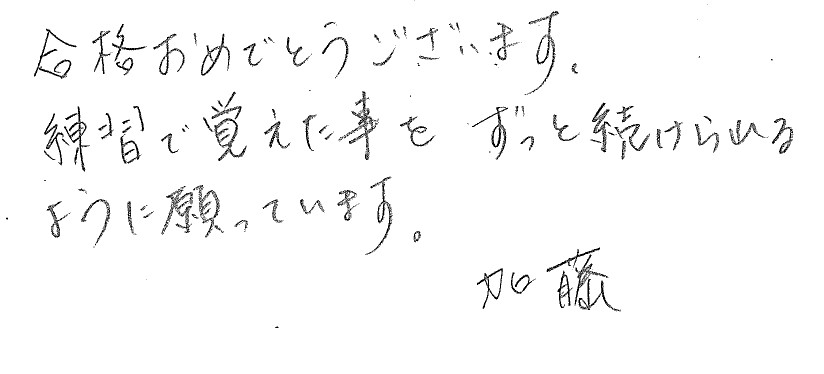 合格おめでとうございます。
練習で覚えた事を ずっと続けられる
ように願っています。
加藤